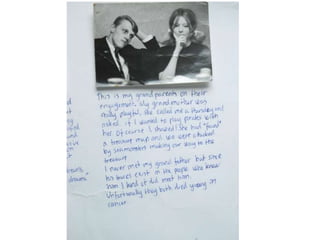 This is my grandparents on their
engagement. My grandmother was
really playful, she called me a Thursday and
asked if I wanted to play pirates with
her. Of course I showed! She had "found"
a treasure map and we were attacked
by sin monsters making our way to the
treasure
I never met my grandfather but since
his exist in the people who knew
him I kind of did meet him.
Unfortunately they both died young in
cancer.